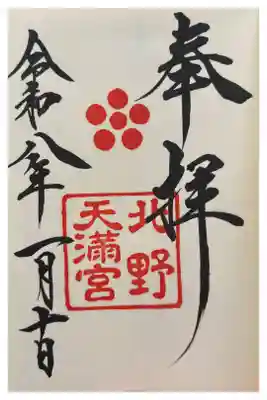 奉拝
北野
天満宮
令和八年一月十日